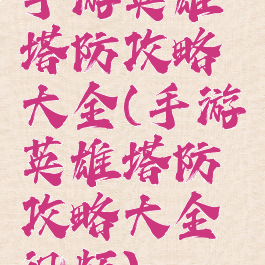 手游英雄
塔防攻略
大全(手游
英雄塔防
攻略大全
视频)